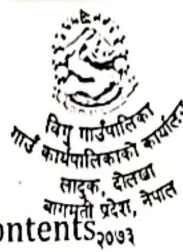 विगु गाउँपालिका
गाउँ कार्यपालिकाको कार्यालय
लादुक, दोलखा
बागमती प्रदेश, नेपाल
ontents
२०७३